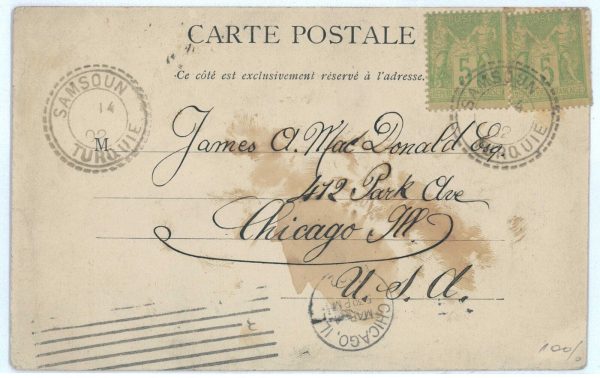 CARTE POSTALE
Ce côté est exclusivement réservé à l'adresse.
5
5
SAMSOUN
14
02
TURQUIE
SAMSOUN
TURQUIE
M
James A. Mac Donald Esq.
412 Park Ave
Chicago Ill.
U. S. A.
CHICAGO, ILL
MAR
100/